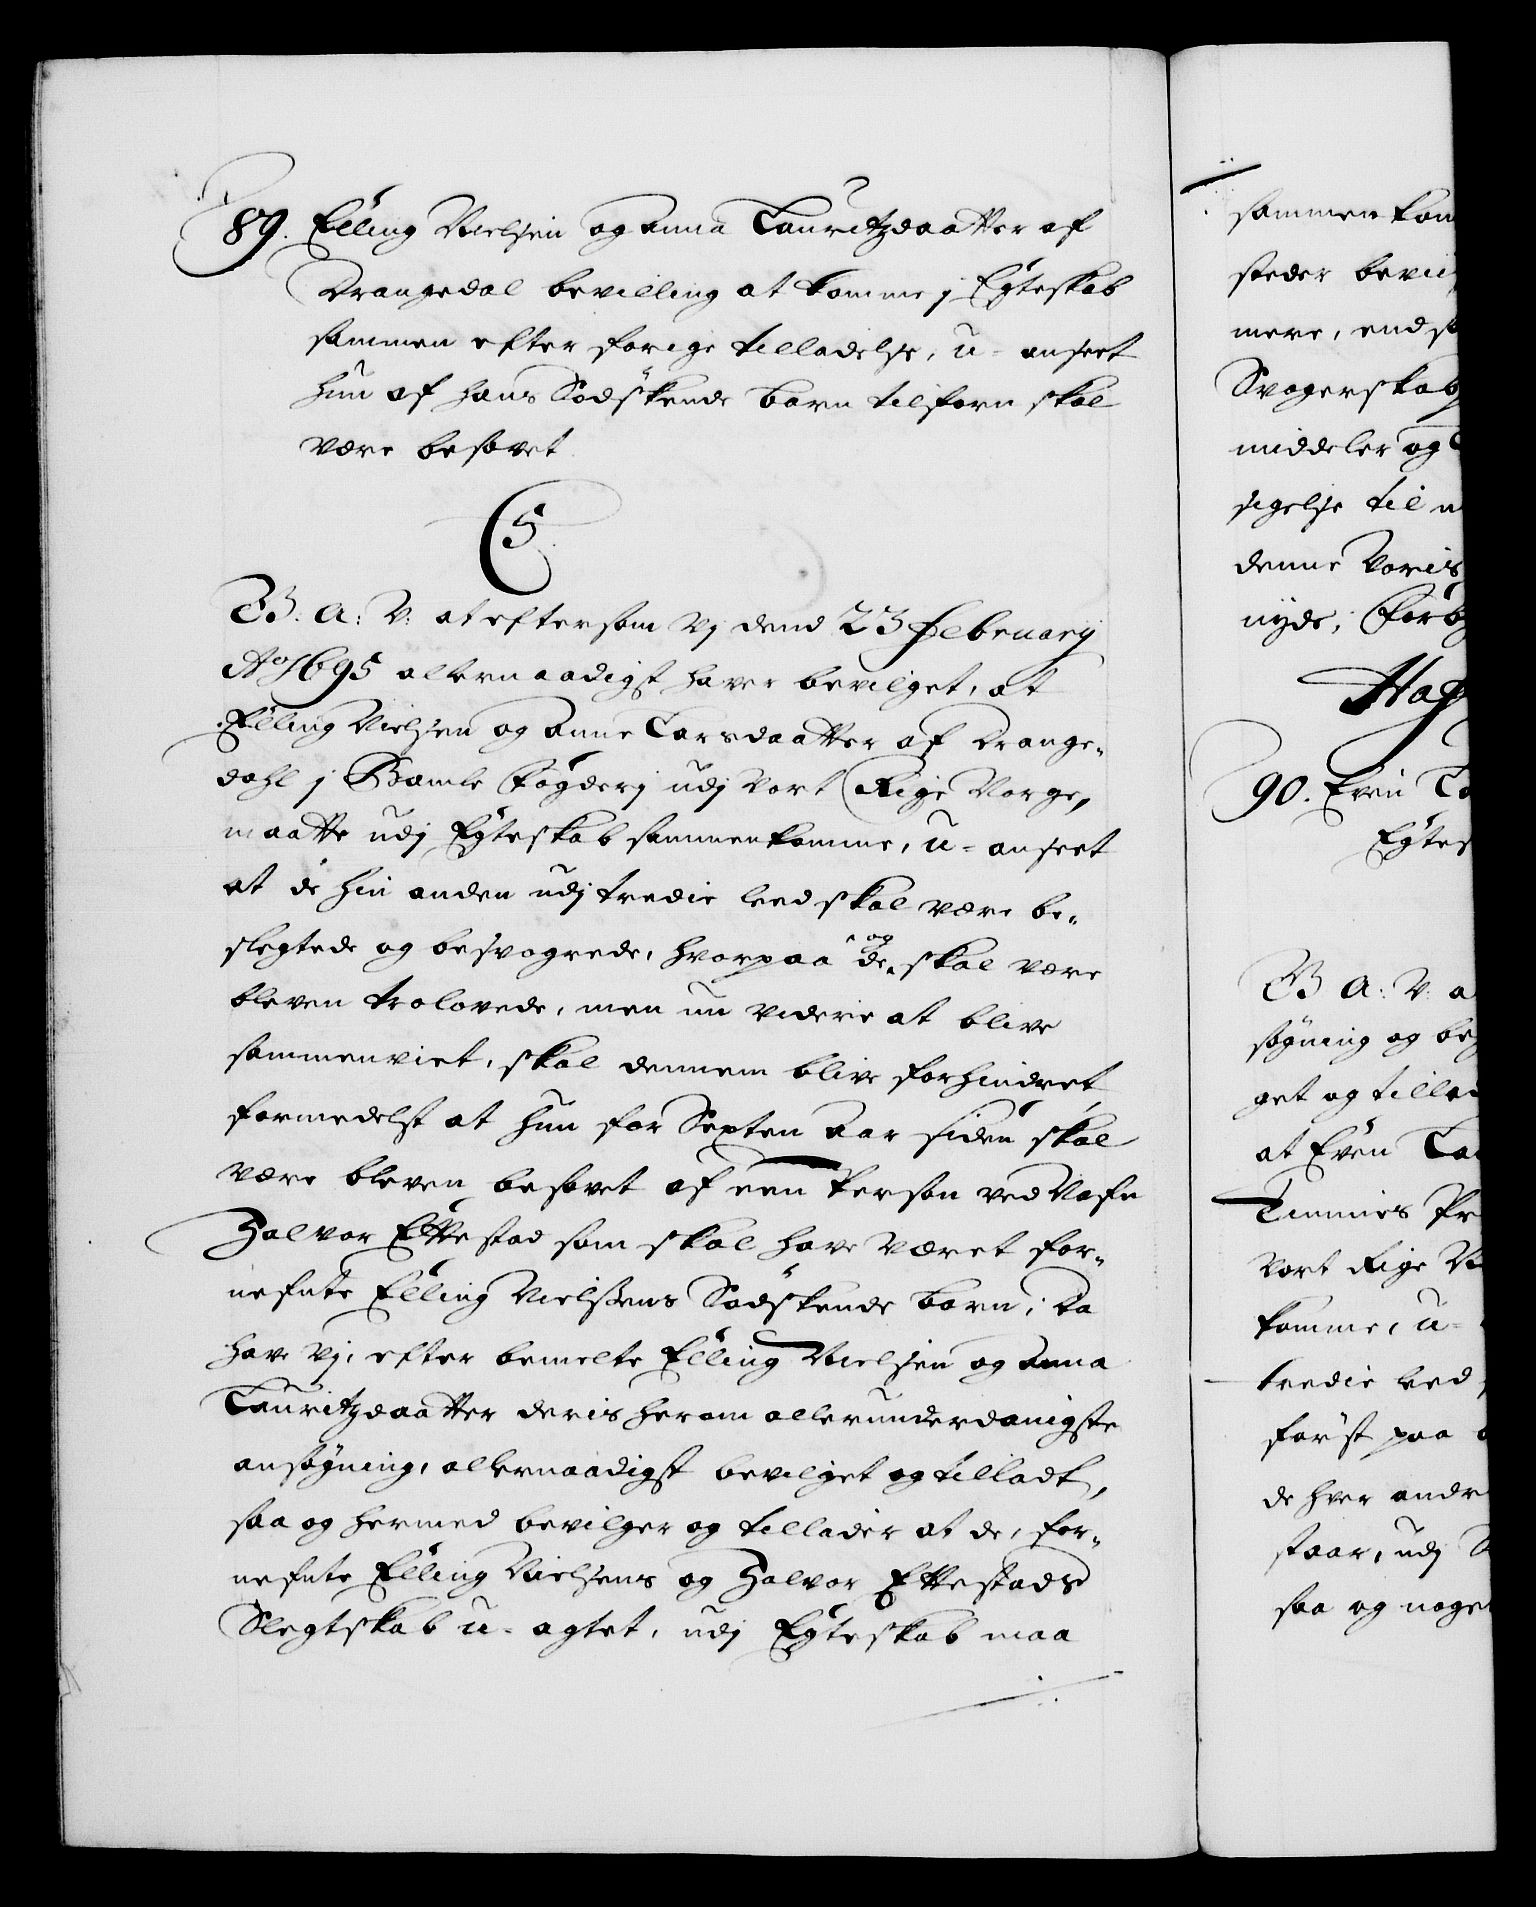 89. Elling Nielsen og Anna Lauritzdaatter af
Drangedal bevilling at komme j Egteskab
sammen efter forige tilladelse, u-anseet
hun af hans Sødskende barn tilforn skal
være besovet
C5
G. A: V: at eftersom Vj dend 23 February
Ao 1695 allernaadigst haver bevilget, at
Elling Nielsen og Anne Larsdaatter af Drange-
dahl j Bamle Fogderj udj Vort Rige Norge,
maatte udj Egteskab sammenkomme, u-anseet
at de hin anden udj tredie leed skal være be-
slegtede og besvogrede, hvorpaa de og skal være
bleven trolovede, men nu videre at blive
sammenviet, skal dennem blive forhindret
formedelst at hun for Sexten Aar siden skal
være bleven besovet af een Person ved Nafn
Halvor Ettestad som skal have været for-
nefnte Elling Nielsens Sødskende barn; Da
have Vj, efter bemelte Elling Nielsen og Anna
Lauritzdaatter deris herom allerunderdanigste
ansøgning, allernaadigst bevilget og tilladt,
saa og hermed bevilger og tillader at de, for-
nefnte Elling Nielsens og Halvor Ettestads
Slegtskab u-agtet, udj Egteskab maa
sammenkom
steder bevil
mere, end s
Svogerskab
middeler og
sigelse til
denne Voris
nyde; Forb
Haf
90. Even
Egtes
G A: V: a
søgning og be
get og tillad
at Even
Tinnies Pr
Vort Rige No
komme, u-
tredie leed
først paa
de hver andr
staar, udj
saa og noge